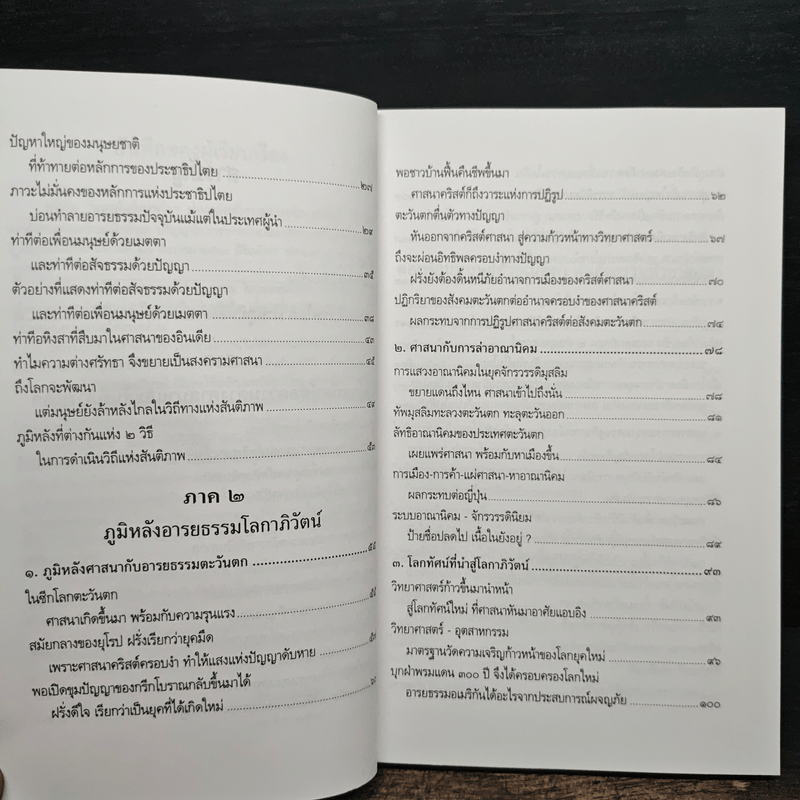 ปัญหาใหญ่ของมนุษยชาติ
ที่ท้าทายต่อหลักการของประชาธิปไตย ๒๗
ภาวะไม่มั่นคงของหลักการแห่งประชาธิปไตย
บ่อนทำลายอารยธรรมปัจจุบันแม้แต่ในประเทศผู้นำ ๒๙
ท่าทีต่อเพื่อนมนุษย์ด้วยเมตตา
และท่าทีต่อสัจธรรมด้วยปัญญา ๓๕
ตัวอย่างที่แสดงท่าทีต่อสัจธรรมด้วยปัญญา
และท่าทีต่อเพื่อนมนุษย์ด้วยเมตตา ๓๘
ท่าทีอหิงสาที่สืบมาในศาสนาของอินเดีย ๔๓
ทำไมความต่างศรัทธา จึงขยายเป็นสงครามศาสนา ๔๕
ถึงโลกจะพัฒนา
แต่มนุษย์ยังล้าหลังไกลในวิถีทางแห่งสันติภาพ ๔๙
ภูมิหลังที่ต่างกันแห่ง ๒ วิธี
ในการดำเนินวิถีแห่งสันติภาพ ๕๓
ภาค ๒
ภูมิหลังอารยธรรมโลกาภิวัตน์
๑. ภูมิหลังศาสนากับอารยธรรมตะวันตก ๕๕
ในซีกโลกตะวันตก
ศาสนาเกิดขึ้นมา พร้อมกับความรุนแรง ๕๕
สมัยกลางของยุโรป ฝรั่งเรียกว่ายุคมืด
เพราะศาสนาคริสต์ครอบงำ ทำให้แสงแห่งปัญญาดับหาย
พอเปิดขุมปัญญาของกรีกโบราณกลับขึ้นมาได้
ฝรั่งดีใจ เรียกว่าเป็นยุคที่ได้เกิดใหม่
พอชาวบ้านฟื้นคืนชีพขึ้นมา
ศาสนาคริสต์ก็ถึงวาระแห่งการปฏิรูป ๖๒
ตะวันตกตื่นตัวทางปัญญา
หันออกจากคริสต์ศาสนา สู่ความก้าวหน้าทางวิทยาศาสตร์ ๖๗
ถึงจะผ่อนอิทธิพลครอบงำทางปัญญา
ฝรั่งยังต้องดิ้นหนีภัยอำนาจการเมืองของคริสต์ศาสนา ๗๐
ปฏิกิริยาของสังคมตะวันตกต่ออำนาจครอบงำของศาสนาคริสต์
ผลกระทบจากการปฏิรูปศาสนาคริสต์ต่อสังคมตะวันตก ๗๔
๒. ศาสนากับการล่าอาณานิคม ๗๘
การแสวงอาณานิคมในยุคจักรวรรดิมุสลิม
ขยายแดนถึงไหน ศาสนาเข้าไปถึงนั่น ๗๘
ทัพมุสลิมทะลวงตะวันตก ทะลุตะวันออก ๘๑
ลัทธิอาณานิคมของประเทศตะวันตก
เผยแพร่ศาสนา พร้อมกับหาเมืองขึ้น ๘๔
การเมือง-การค้า-แผ่ศาสนา-หาอาณานิคม
ผลกระทบต่อญี่ปุ่น ๘๖
ระบบอาณานิคม - จักรวรรดินิยม
ป้ายชื่อปลดไป เนื้อในยังอยู่ ? ๘๙
๓. โลกทัศน์ที่นำสู่โลกาภิวัตน์ ๙๓
วิทยาศาสตร์ก้าวขึ้นมานำหน้า
สู่โลกทัศน์ใหม่ ที่ศาสนาหันมาอาศัยแอบอิง ๙๓
วิทยาศาสตร์ - อุตสาหกรรม
มาตรฐานวัดความเจริญก้าวหน้าของโลกยุคใหม่ ๙๖
บุกฝ่าพรมแดน ๓๐๐ ปี จึงได้ครอบครองโลกใหม่
อารยธรรมอเมริกันได้อะไรจากประสบการณ์ผจญภัย ๑๐๐